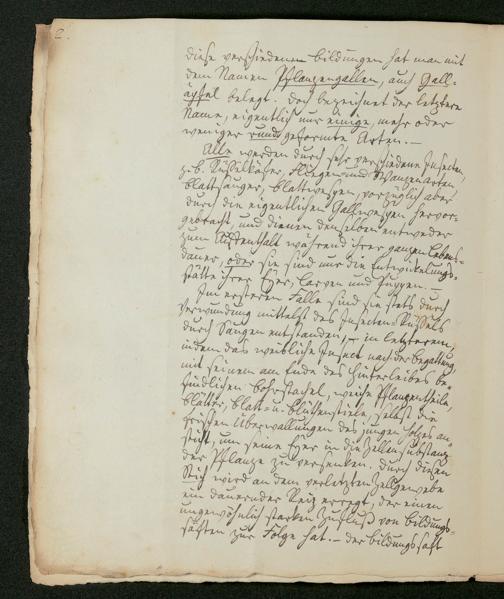 2.
diese verschiedenen Bildungen hat man mit
dem Namen Pflanzengallen, auch Gall-
äpfel belegt. Doch bezeichnet der letztere
Name, eigentlich nur einige, mehr oder
weniger rund geformte Arten. —
Alle werden durch sehr verschiedene Insecten,
z. b. Rüßelkäfer, Fliegen und Wanzenarten,
Blattsauger, Blattwespen, vorzüglich aber
durch die eigentlichen Gallwespen hervor-
gebracht und dienen denselben entweder
zum Aufenthalt während ihrer ganzen Lebens-
dauer, oder sie sind nur die Entwickelungs-
stätte ihrer Eyer, Larven und Puppen. —
Im ersteren Falle sind sie stets durch
Verwundung mittelst des Insecten-Rüßels
durch Saugen entstanden, — in letzterem,
indem das weibliche Insect nach der Begattung,
mit seinem am Ende des Hinterleibes be-
findlichen Bohrstachel, weiche Pflanzentheile,
Blätter, Blatt- u. Blüthenstiele, selbst die
frischen Überwallungen des jungen Holzes an-
sticht, um seine Eyer in die Zellensubstanz
der Pflanze zu versenken. Durch diesen
Stich wird an dem verletzten Zellgewebe
ein dauernder Reiz erregt, der einen
ungewöhnlich starken Zufluß von Bildungs-
säften zur Folge hat. — Der Bildungssaft